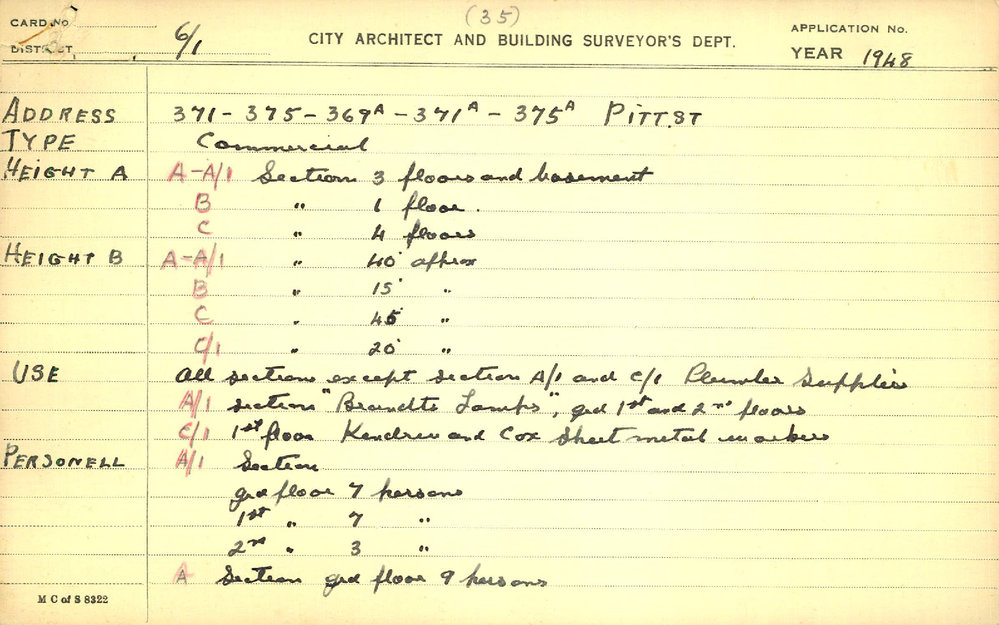 (35)
CARD No
DISTRICT
6/1
CITY ARCHITECT AND BUILDING SURVEYOR'S DEPT.
APPLICATION No.
YEAR 1948
ADDRESS 371 - 375 - 369A - 371A - 375A PITT. ST
TYPE Commercial
HEIGHT A A-A/1 Section 3 floors and basement
B " 1 floor.
C " 4 floors
HEIGHT B A-A/1 " 40' approx
B " 15' "
C " 45' "
C/1 " 20' "
USE All sections except section A/1 and C/1 Plumber Supplies
A/1 section "Brandts Lamps", grd 1st and 2nd floors
C/1 1st floor Kendrew and Cox Sheet metal workers
PERSONELL A/1 Section
grd floor 7 persons
1st " 7 "
2nd " 3 "
A Section grd floor 9 persons
M C of S 8322